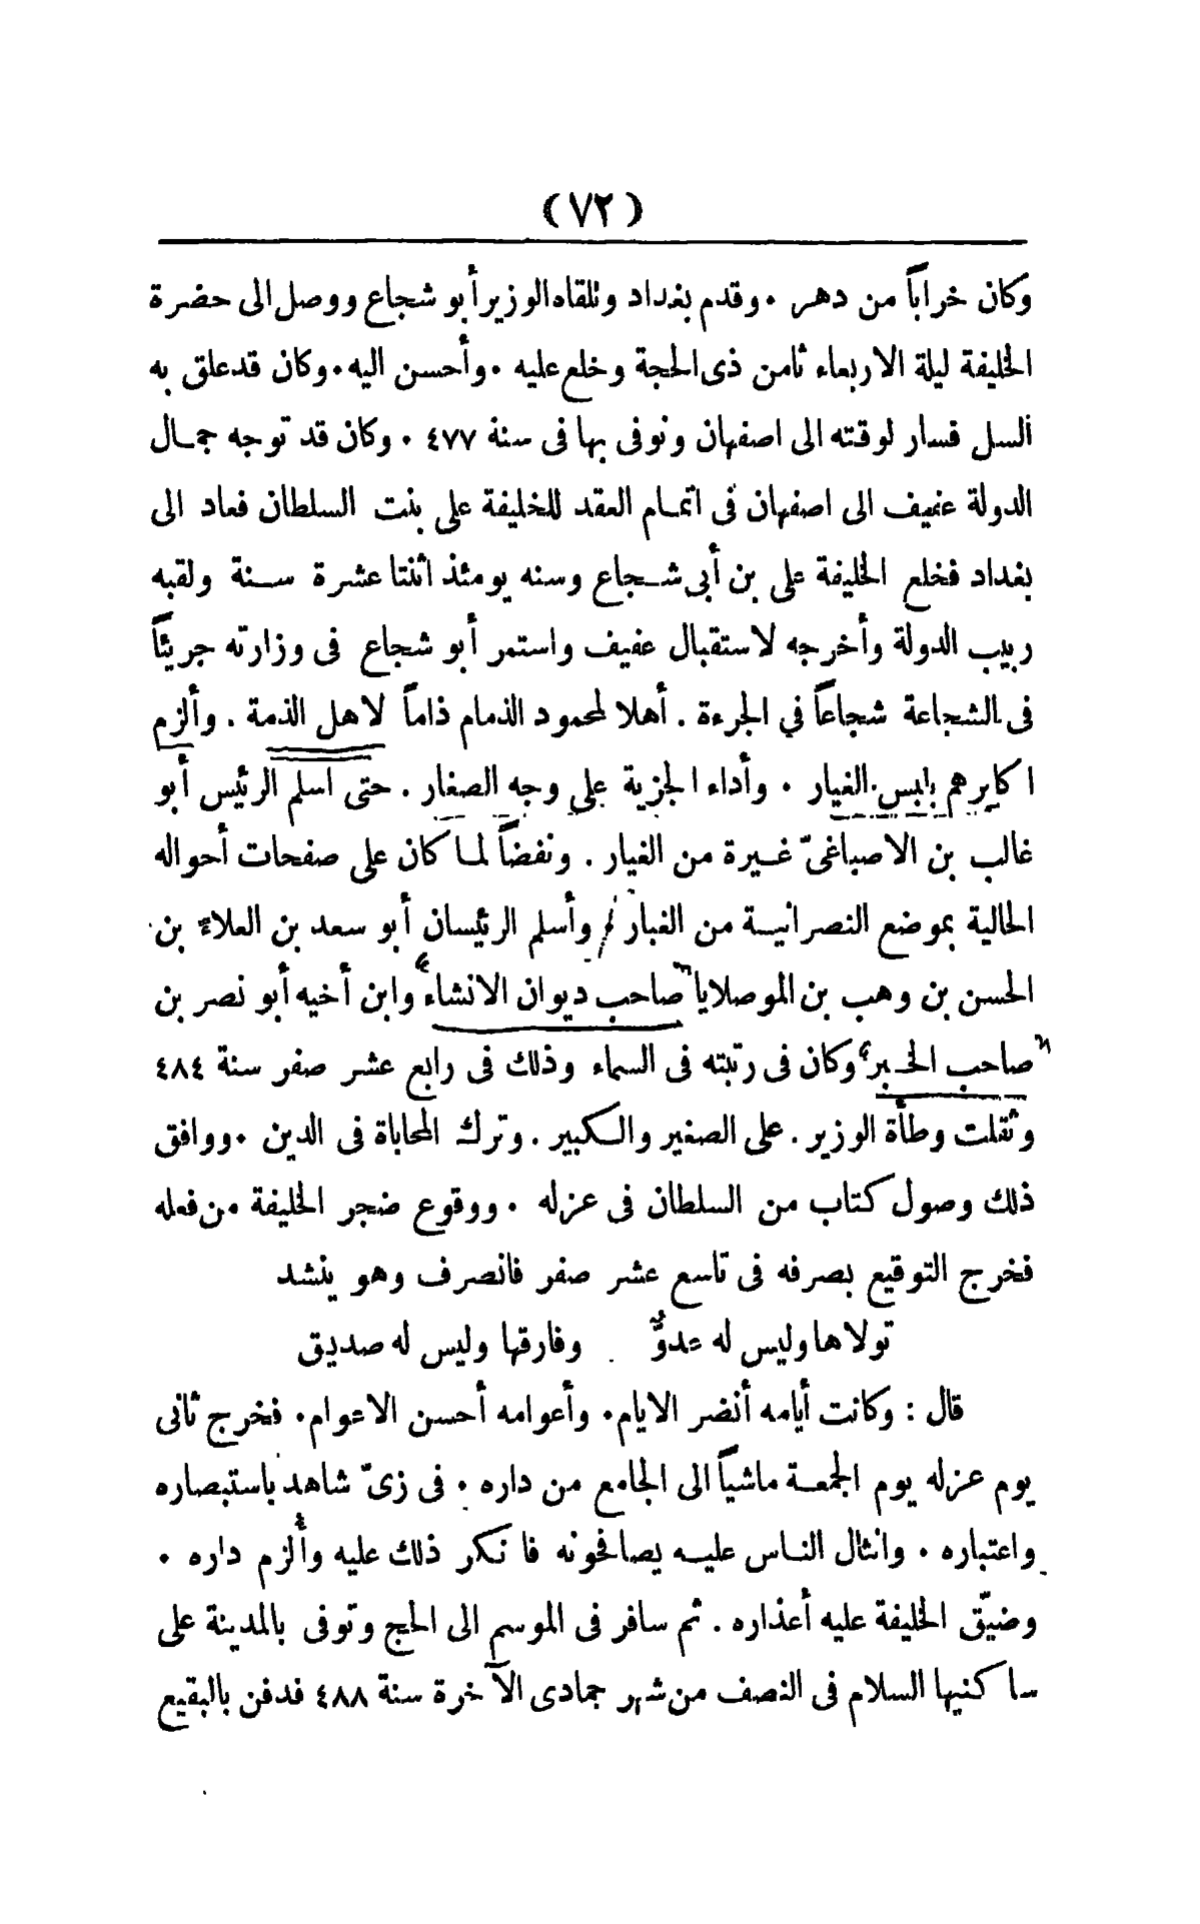 ( ٧٢ )
وكان خراباً من دهر . وقدم بغداد وتلقاه الوزير أبو شجاع ووصل الى حضرة
الخليفة ليلة الاربعاء ثامن ذى الحجة وخلع عليه . وأحسن اليه . وكان قد علق به
السل فسار لوقته الى اصفهان وتوفى بها فى سنة ٤٧٧ . وكان قد توجه جمال
الدولة عفيف الى اصفهان فى اتمام العقد للخليفة على بنت السلطان فعاد الى
بغداد فخلع الخليفة على بن أبى شجاع وسنه يومئذ اثنتا عشرة سنة ولقبه
ربيب الدولة وأخرجه لاستقبال عفيف واستمر أبو شجاع فى وزارته جريئاً
فى الشجاعة شجاعاً في الجرءة . أهلا لمحمود الذمام ذاماً لاهل الذمة . وألزم
اكابرهم بلبس الغيار . وأداء الجزية على وجه الصغار . حتى اسلم الرئيس أبو
غالب بن الاصباغىّ غيرة من الغيار . ونفضاً لما كان على صفحات أحواله
الحالية بموضع النصرانية من الغبار وأسلم الرئيسان أبو سعد بن العلاء بن
الحسن بن وهب بن الموصلايا صاحب ديوان الانشاء وابن أخيه أبو نصر بن
صاحب الخبر وكان فى رتبته فى السماء وذلك فى رابع عشر صفر سنة ٤٨٤
وثقلت وطأة الوزير . على الصغير والكبير . وترك المحاباة فى الدين . ووافق
ذلك وصول كتاب من السلطان فى عزله . ووقوع ضجر الخليفة من فعله
فخرج التوقيع بصرفه فى تاسع عشر صفر فانصرف وهو ينشد
تولاها وليس له عدوٌّ وفارقها وليس له صديق
قال : وكانت أيامه أنضر الايام . وأعوامه أحسن الاعوام . فخرج ثانى
يوم عزله يوم الجمعة ماشياً الى الجامع من داره . فى زىّ شاهد باستبصاره
واعتباره . وانثال الناس عليه يصافحونه فانكر ذلك عليه وأُلزم داره .
وضيّق الخليفة عليه أعذاره . ثم سافر فى الموسم الى الحج وتوفى بالمدينة على
ساكنيها السلام فى النصف من شهر جمادى الآخرة سنة ٤٨٨ فدفن بالبقيع